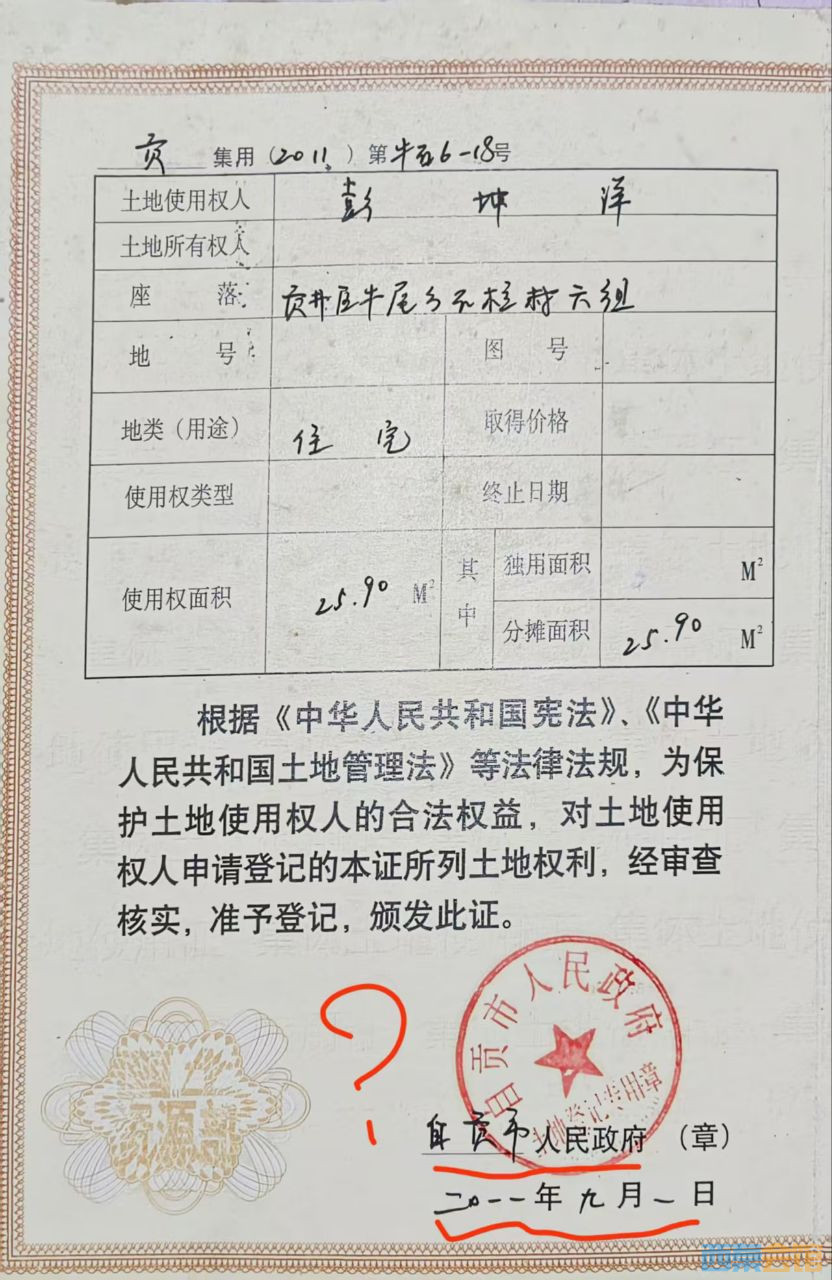 贡 集用（2011.）第牛石6-18号
土地使用权人 彭坤洋
土地所有权人
座落 贡井区牛尾乡石柱村六组
地号 图号
地类（用途） 住宅 取得价格
使用权类型 终止日期
使用权面积 25.90 M² 其中 独用面积 M²
分摊面积 25.90 M²
根据《中华人民共和国宪法》、《中华
人民共和国土地管理法》等法律法规，为保
护土地使用权人的合法权益，对土地使用
权人申请登记的本证所列土地权利，经审查
核实，准予登记，颁发此证。
?
自贡市人民政府
土地登记专用章
自贡市 人民政府（章）
二〇一一年九月一日